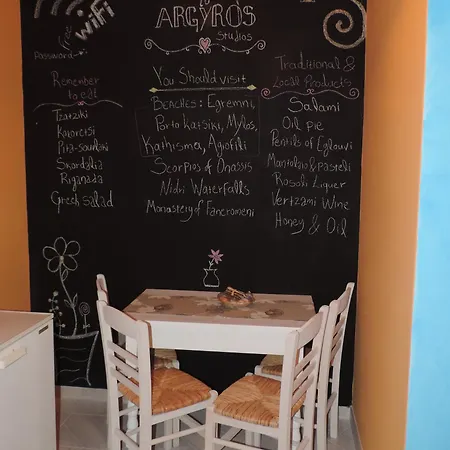 free
wifi
Password
ARGYROS
Studios
Remember
to eat
Tzatziki
Kokoretsi
Pita-souvlaki
Skordalia
Riganada
Greek salad
You Should visit
Beaches: Egremni,
Porto Katsiki, Mylos,
Kathisma, Agiofili
Scorpios of Onassis
Nidri Waterfalls
Monastery of Faneromeni
Traditional &
Local Products
Salami
Oil pie
Pentils of Eglouvi
Mantolato & pasteli
Rosoli Liquer
Vertzami Wine
Honey & Oil